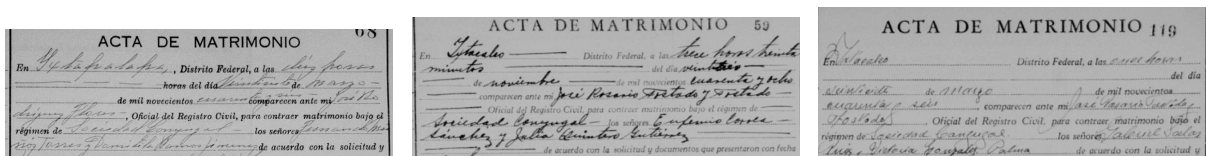 68
ACTA DE MATRIMONIO
En Ixtapalapa, Distrito Federal, a las diez horas
horas del día veintiuno de marzo
de mil novecientos cuarenta y comparecen ante mi José Ro
dríguez Flores, Oficial del Registro Civil, para contraer matrimonio bajo el
régimen de Sociedad Conyugal los señores Fernando
Torres y Ramírez de acuerdo con la solicitud y
ACTA DE MATRIMONIO 59
En Iztacalco Distrito Federal, a las trece horas treinta
minutos del día veintitrés
de noviembre de mil novecientos cuarenta y ocho
comparecen ante mi José Rosario Tostado y Tostado
Oficial del Registro Civil, para contraer matrimonio bajo el régimen de
Sociedad Conyugal los señores Eufemio Correa
Sánchez y Julia Quintero Gutiérrez
de acuerdo con la solicitud y documentos que presentaron con fecha
ACTA DE MATRIMONIO 119
En Iztacalco Distrito Federal, a las once horas
del día
veintisiete de marzo de mil novecientos
cuarenta y seis comparecen ante mi José Rosario Tostado y
Tostado Oficial del Registro Civil, para contraer matrimonio bajo el
régimen de Sociedad Conyugal los señores Gabriel Salas
Ruiz y Victoria González Palma
de acuerdo con la solicitud y